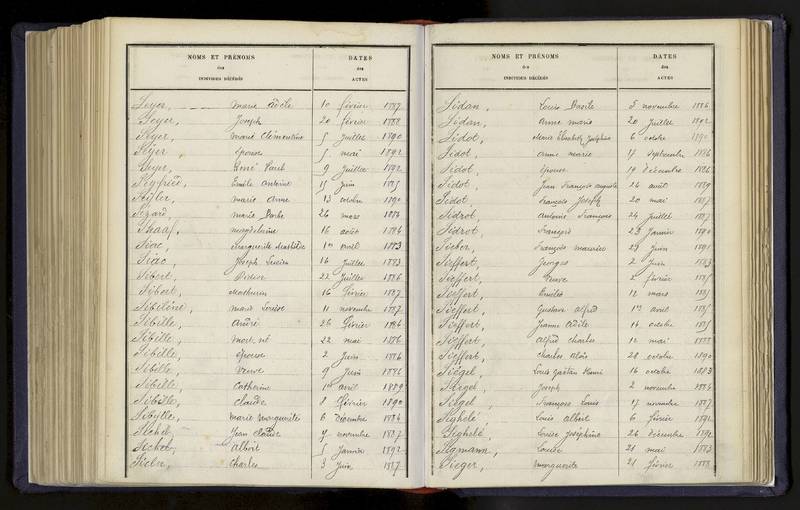 NOMS ET PRÉNOMS
des
INDIVIDUS DÉCÉDÉS
DATES
des
ACTES
Seyer, Marie Adèle 10 février 1887
Seyer, Joseph 20 février 1888
Seyer, Marie Clémentine 5 Juillet 1890
Seyer épouse 5 mai 1892
René Paul 9 Juillet 1892
Siegfried, Emile Antoine 15 Juin 1885
Marie Anne 13 octobre 1890
Marie Barbe 26 mars 1884
Magdelaine 16 août 1884
Siac, Marguerite 1er avril 1883
Siac, Joseph Lucien 14 Juillet 1883
Sibert, 22 Juillet 1886
Sibert, Mathurin 16 février 1887
Marie Louise 11 novembre 1887
Sibille, André 26 février 1884
Sibille, Mort né 22 mai 1886
Sibille, épouse 2 Juin 1886
Sibille Veuve 9 Juin 1886
Sibille Catherine 1er avril 1889
Sibille, Claude 8 février 1890
Sibylle, Marie Marguerite 6 décembre 1884
Sichel Jean Claude 7 novembre 1887
Sichel, Albert 5 Janvier 1892
Charles 3 Juin 1887
NOMS ET PRÉNOMS
des
INDIVIDUS DÉCÉDÉS
DATES
des
ACTES
Sidan, Louis Basile 5 novembre 1886
Sidan, Anne Marie 20 Juillet 1892
Sidot, Marie Elisabeth Joséphine 6 octobre 1890
Sidot, Anne Marie 17 septembre 1886
Sidot, épouse 19 décembre 1886
Sidot, Jean François Auguste 26 août 1889
Sidot, François Joseph 20 mai 1887
Sidrot, Antoine François 24 Juillet 1887
Sidrot, François 23 Janvier 1890
François Maurice 29 Juin 1891
Sieffert, Georges 2 Juin 1883
Sieffert, Veuve 2 février 1885
Sieffert, Emilie 12 mars 1885
Sieffert, Gustave Alfred 1er avril 1885
Sieffert, Jeanne Adèle 14 octobre 1885
Sieffert, Alfred Charles 12 mai 1888
Sieffert, Charles Aloïs 28 octobre 1890
Siegel, Louis Gaëtan 16 octobre 1883
Siegel, Joseph 2 novembre 1884
Siegel, François Louis 17 novembre 1887
Sieghelé Louis Albert 6 février 1892
Sieghelé, Louise Joséphine 26 décembre 1892
Siegmann, Louise 21 mai 1883
Sieger, Marguerite 21 février 1888